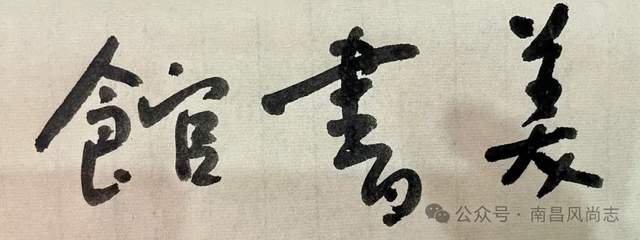 美書館
公众号·南昌风尚志